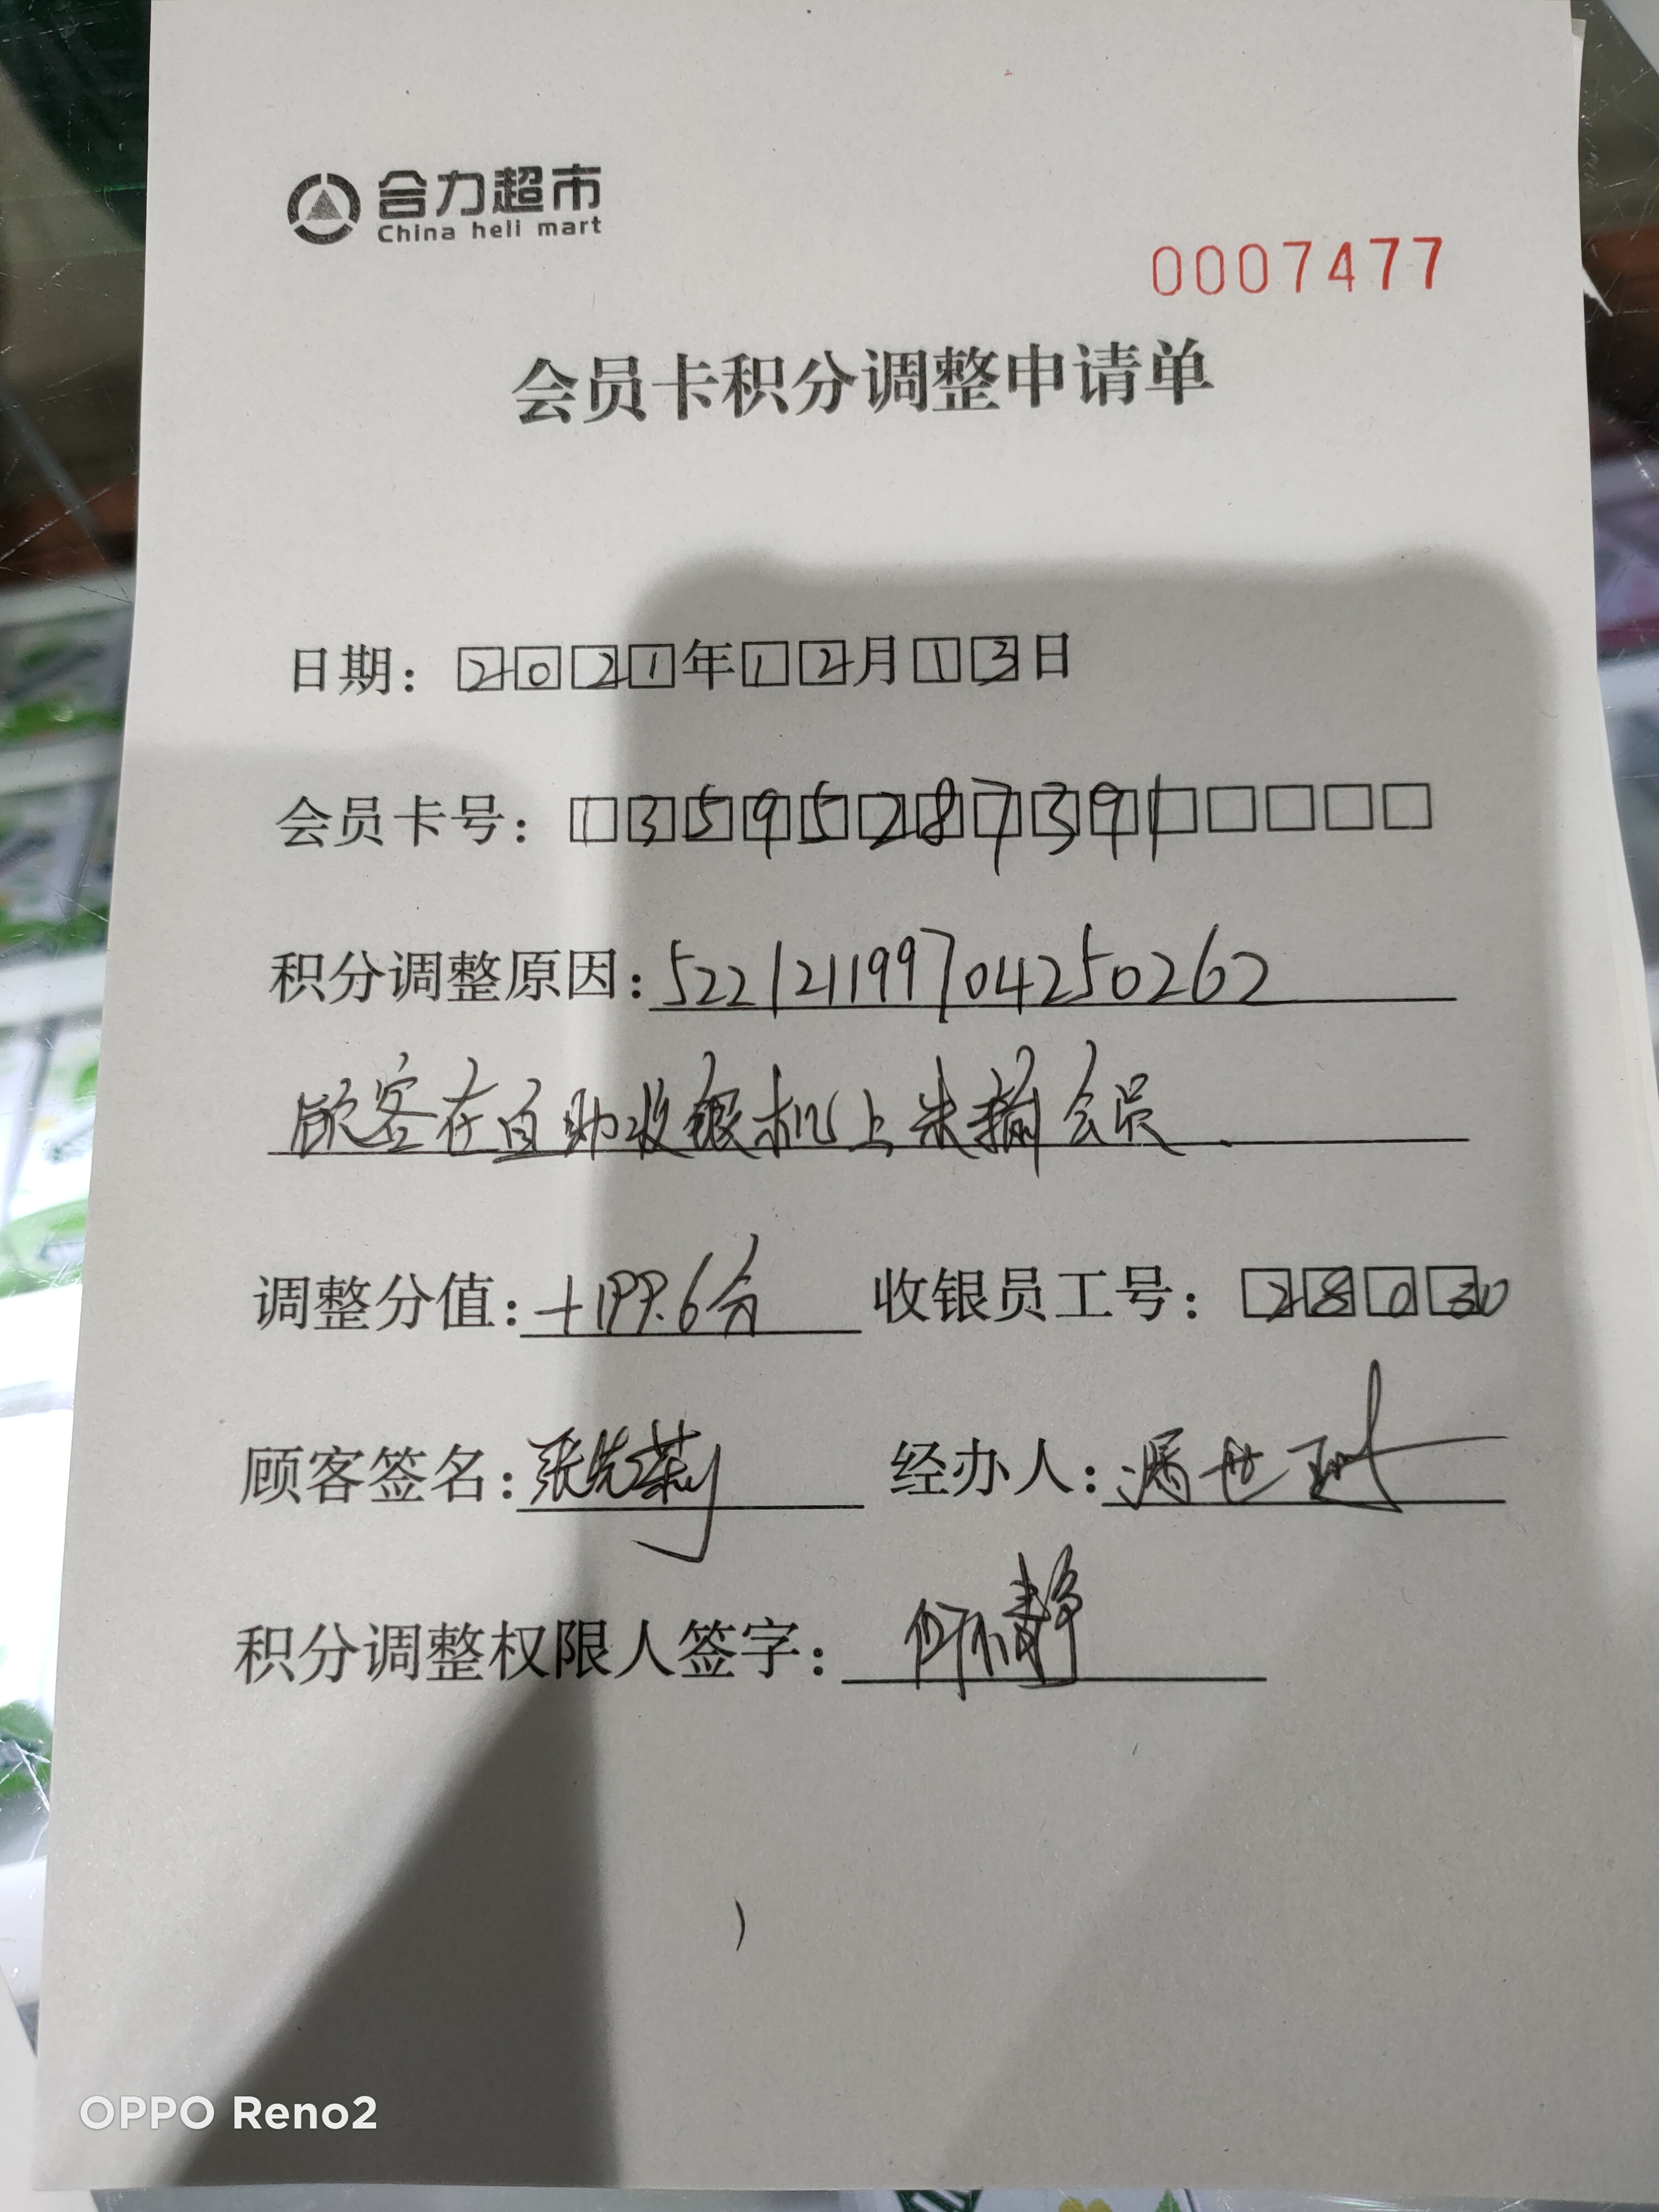 合力超市
China heli mart
0007477
会员卡积分调整申请单
日期：2021年12月13日
会员卡号：13595287391
积分调整原因：522121199704250262
顾客在自助收银机上未输会员.
调整分值：+199.6分 收银员工号：28030
顾客签名：张先莉 经办人：冯世
积分调整权限人签字：何静
OPPO Reno2